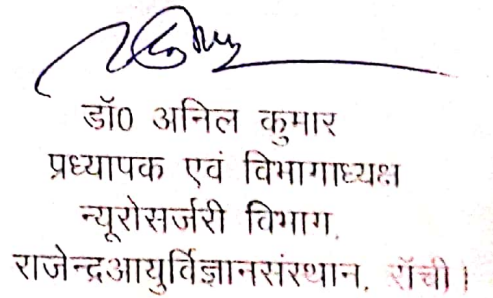 डॉ0 अनिल कुमार
प्रध्यापक एवं विभागाध्यक्ष
न्यूरोसर्जरी विभाग,
राजेन्द्रआयुर्विज्ञानसंस्थान, राँची।